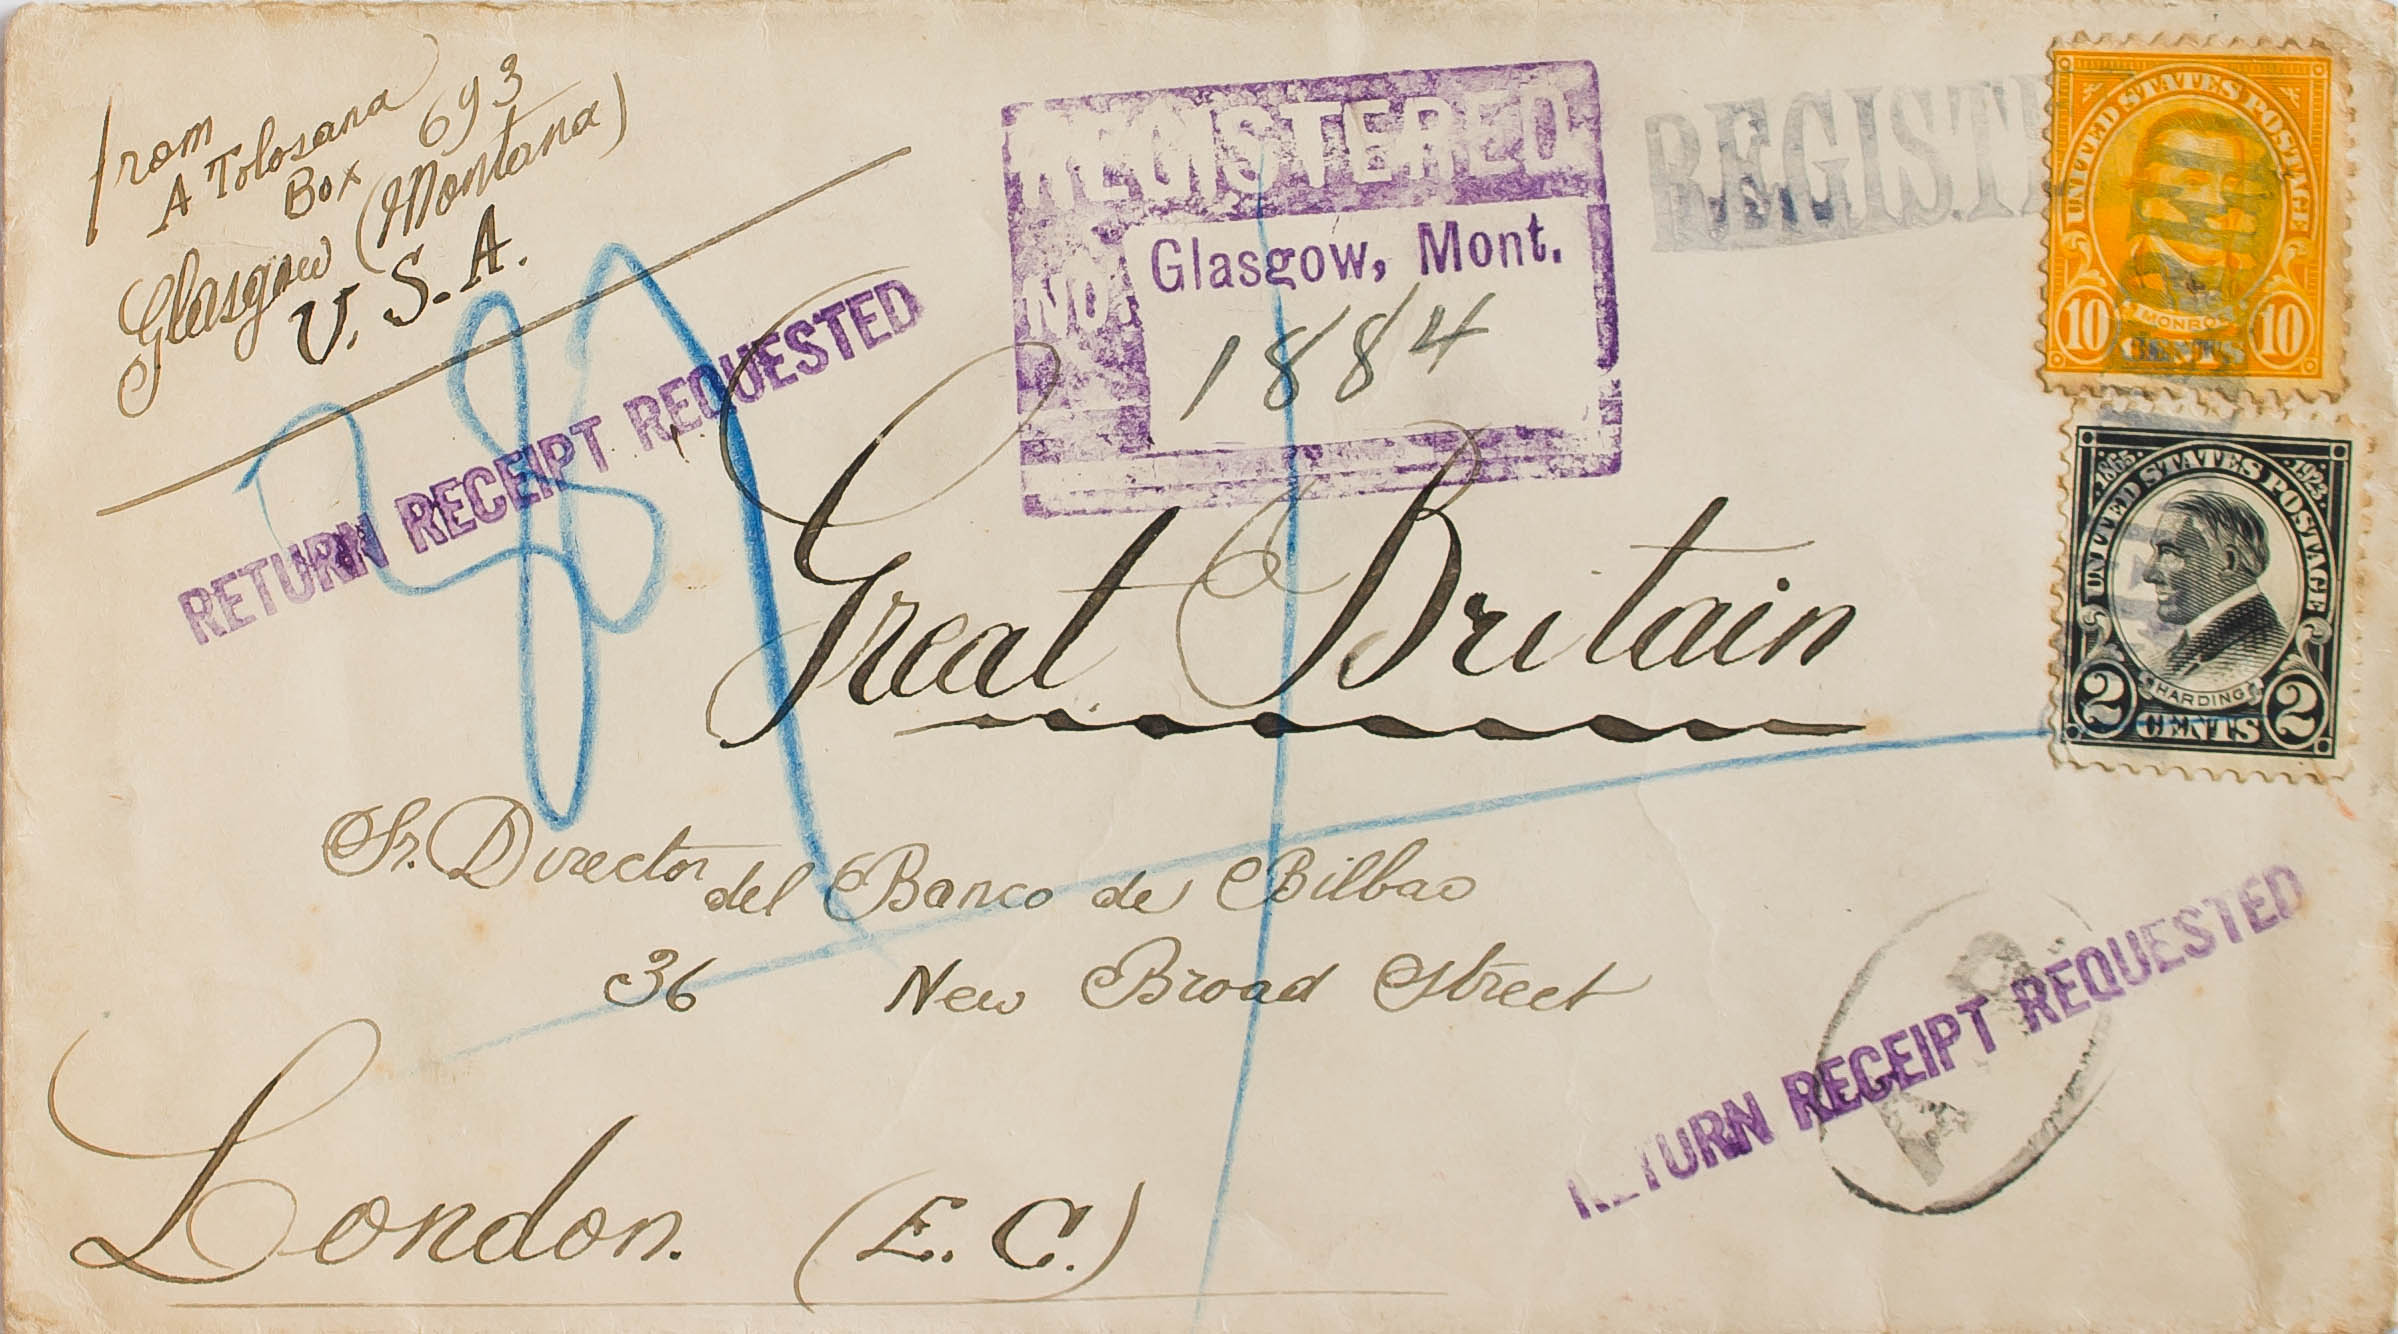 from
A Tolosana
Box 693
Glasgow (Montana)
U.S.A.
RETURN RECEIPT REQUESTED
REGISTERED
NO.
Glasgow, Mont.
1884
UNITED STATES POSTAGE
MONROE
10 CENTS 10
1865. 1923.
UNITED STATES POSTAGE
HARDING
2 CENTS 2
Great Britain
Sr. Director del Banco de Bilbao
36 New Broad Street
London. (E.C.)
RETURN RECEIPT REQUESTED